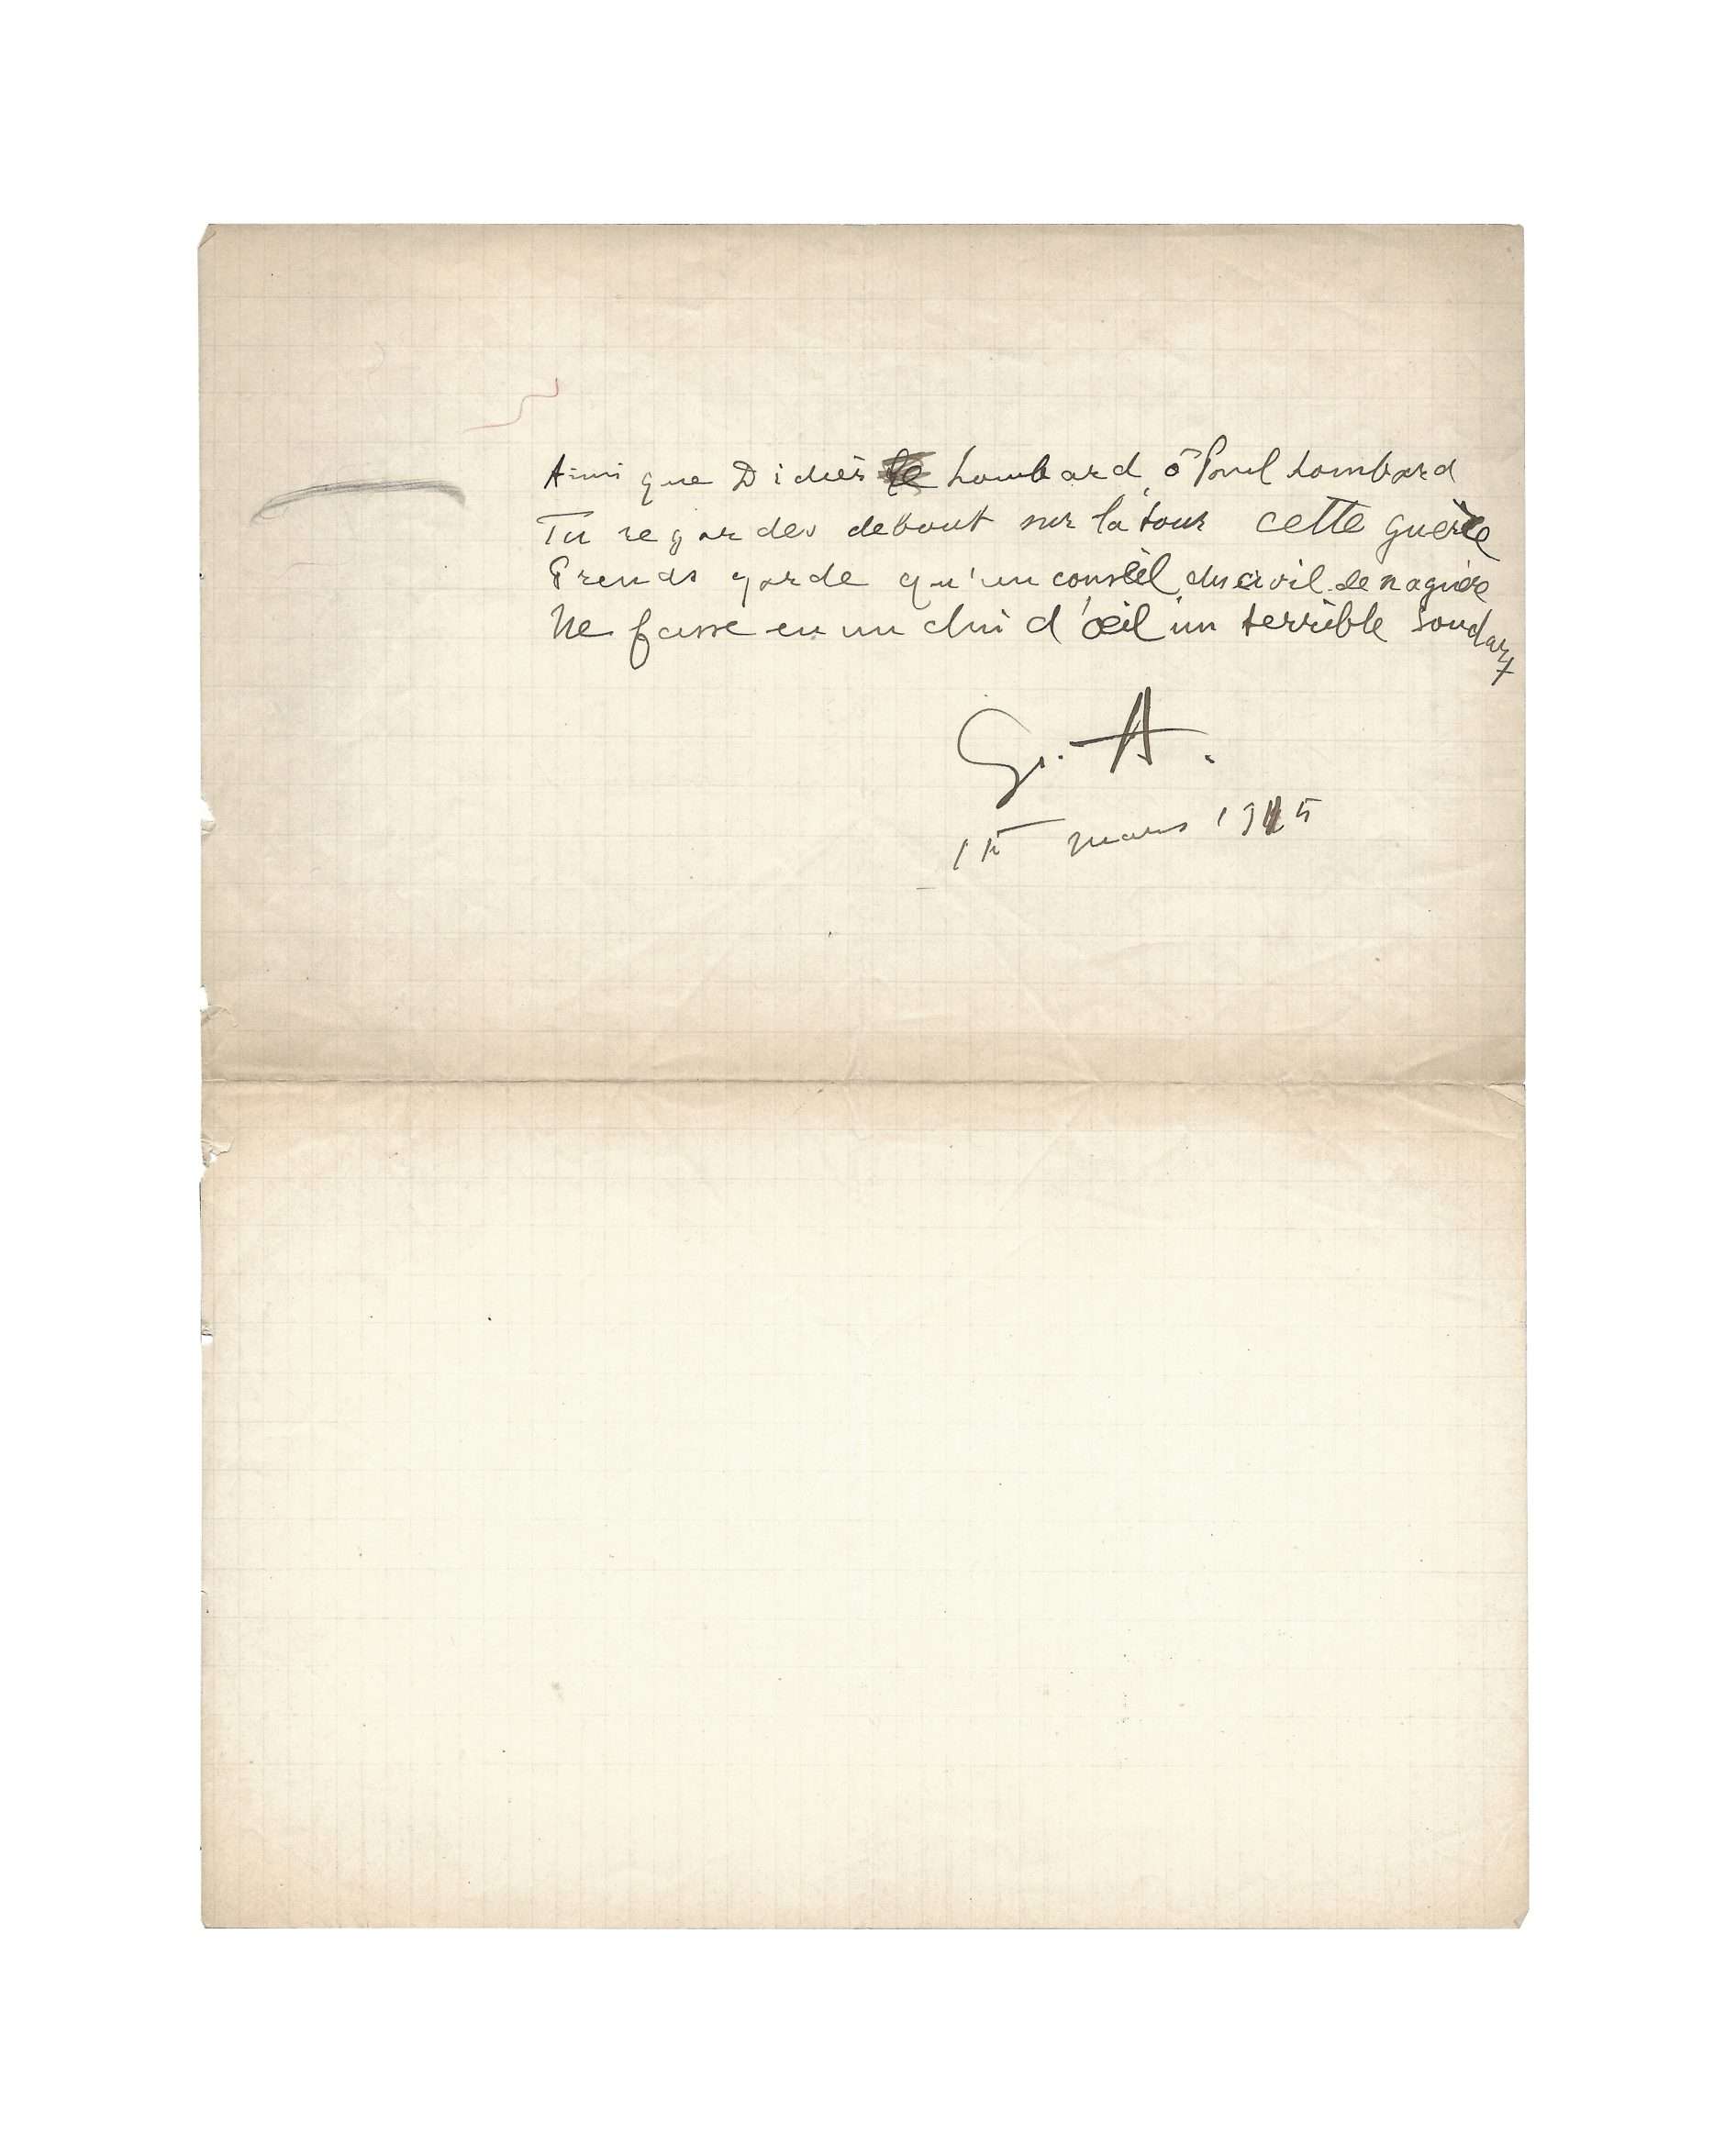 Ainsi que Didier le Lombard, ô Paul Lombard
Tu regardes debout sur la tour cette guerre
Prends garde qu'un conseil du civil de naguère
Ne fasse en un clin d'œil un terrible soudart
G. A.
15 mars 1915